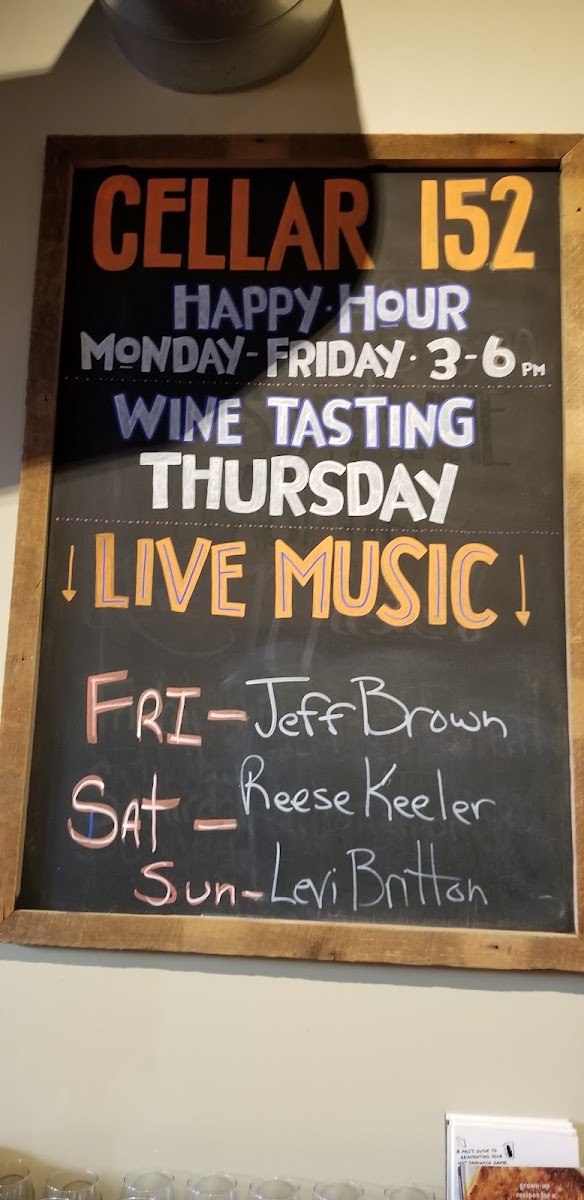 CELLAR 152
HAPPY · HOUR
MONDAY - FRIDAY · 3-6 PM
WINE TASTING
THURSDAY
↓ LIVE MUSIC ↓
FRI - Jeff Brown
SAT - Reese Keeler
SUN - Levi Britton
A PRO'S GUIDE TO
REINVENTING YOUR
HOT SANDWICH GAME.
grown-up
recipes for a